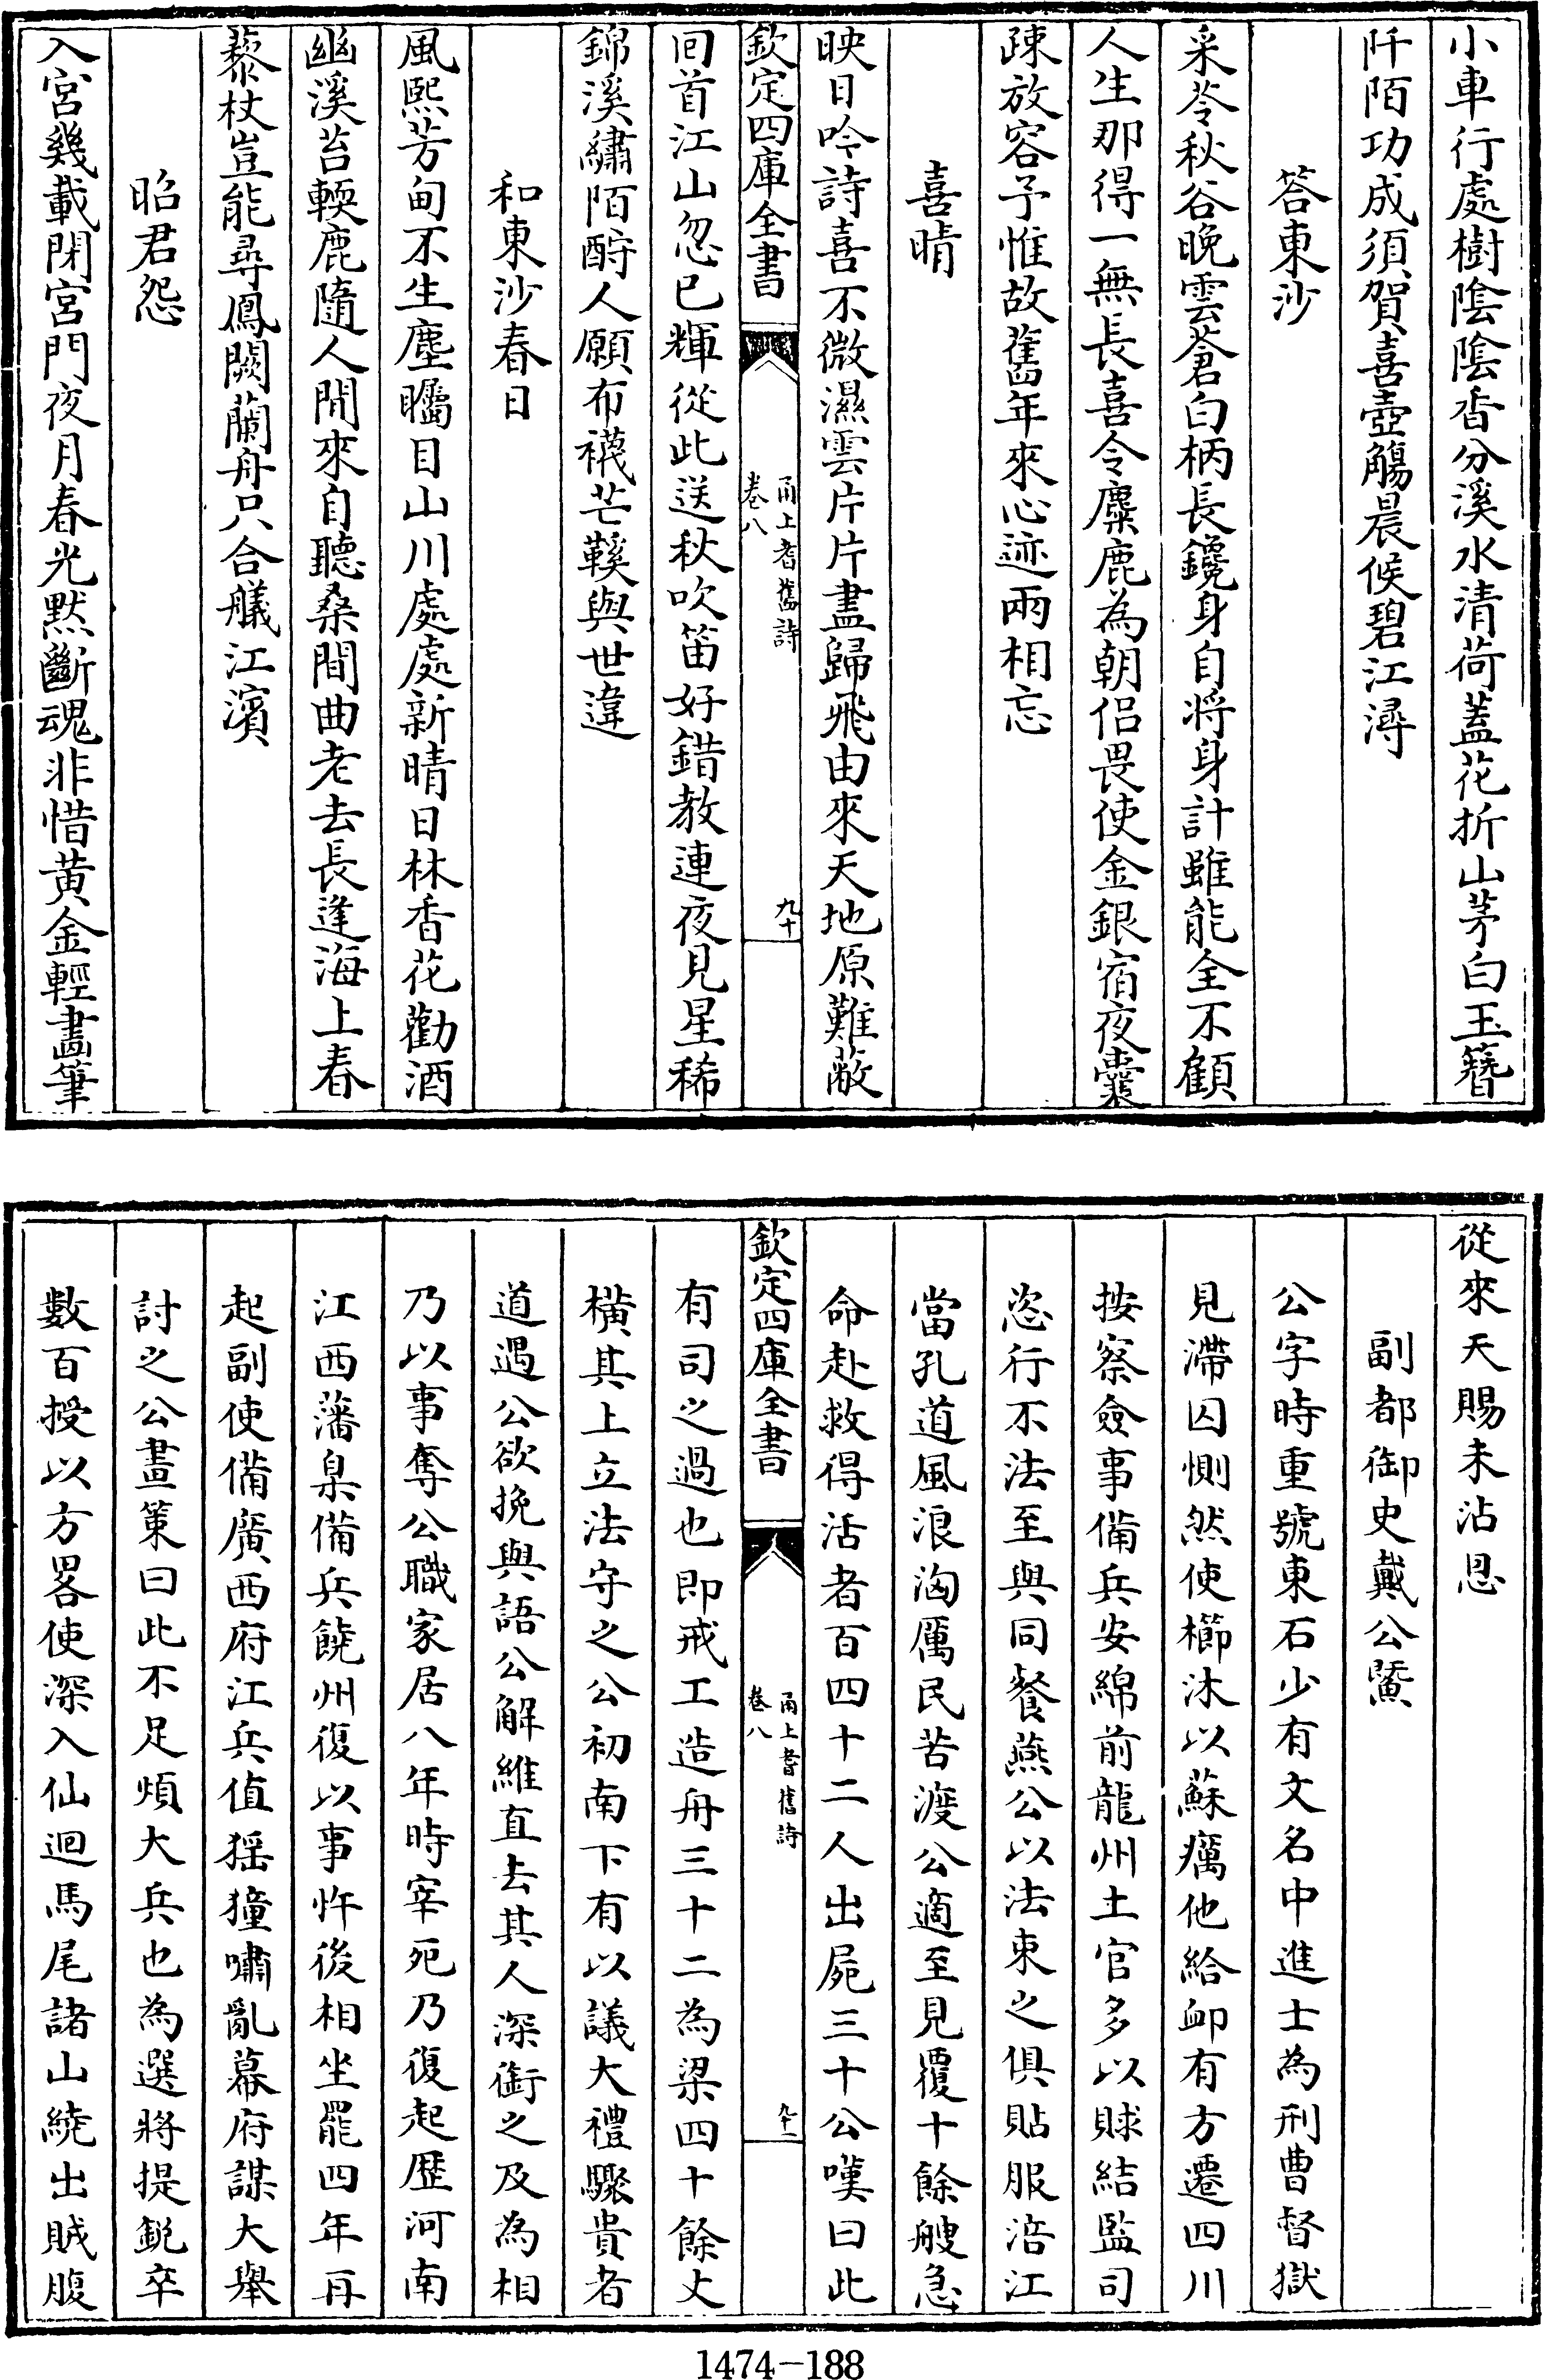 小車行處樹陰陰香分溪水清荷蓋花折山茅白玉簪
阡陌功成須賀喜壺觴晨候碧江潯
答東沙
采苓秋谷晚雲蒼白柄長鑱身自將身計雖能全不顧
人生那得一無長喜令麋鹿為朝侶畏使金銀宿夜囊
疎放容予惟故舊年來心迹兩相忘
喜晴
映日吟詩喜不微濕雲片片盡歸飛由來天地原難蔽
欽定四庫全書
甬上耆舊詩
卷八
九十
回首江山忽已輝從此送秋吹笛好錯教連夜見星稀
錦溪繡陌酹人願布襪芒鞵與世違
和東沙春日
風熙芳甸不生塵矚目山川處處新晴日林香花勸酒
幽溪苔輭鹿隨人閒來自聽桑間曲老去長逢海上春
藜杖豈能尋鳳闕蘭舟只合艤江濱
昭君怨
入宮幾載閉宮門夜月春光黙斷魂非惜黄金輕畫筆
從來天賜未沾恩
副都御史戴公鱀
公字時重號東石少有文名中進士為刑曹督獄
見滯囚惻然使櫛沐以蘇癘他給䘏有方遷四川
按察僉事備兵安綿前龍州土官多以賕結監司
恣行不法至與同餐燕公以法束之俱貼服涪江
當孔道風浪洶厲民苦渡公適至見覆十餘艘急
命赴救得活者百四十二人出屍三十公嘆曰此
欽定四庫全書
甬上耆舊詩
卷八
九十一
有司之過也即戒工造舟三十二為梁四十餘丈
横其上立法守之公初南下有以議大禮驟貴者
道遇公欲挽與語公解維直去其人深銜之及為相
乃以事奪公職家居八年時宰死乃復起歴河南
江西藩臬備兵饒州復以事忤後相坐罷四年再
起副使備廣西府江兵值猺獞嘯亂幕府謀大舉
討之公畫策曰此不足煩大兵也為選將提銳卒
數百授以方畧使深入仙迴馬尾諸山繞出賊腹
1474-188